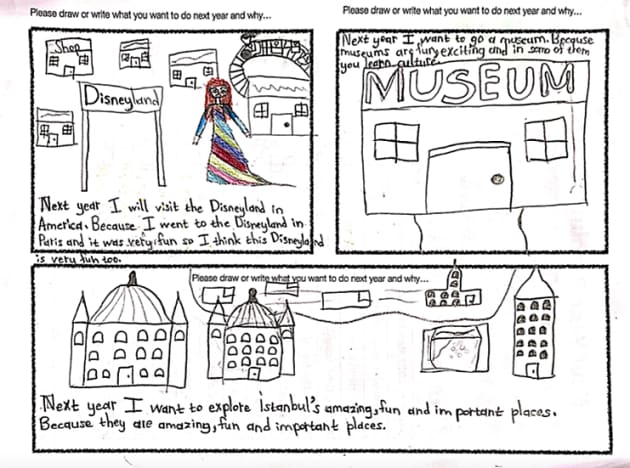 Please draw or write what you want to do next year and why...
Shop
Disneyland
Next year I will visit the Disneyland in
America. Because I went to the Disneyland in
Paris and it was very fun so I think this Disneyland
is very fun too.
Please draw or write what you want to do next year and why...
Next year I want to go a museum. Because
museums are fun, exciting and in some of them
you learn culture.
MUSEUM
Please draw or write what you want to do next year and why...
Next year I want to explore İstanbul's amazing, fun and important places.
Because they are amazing, fun and important places.